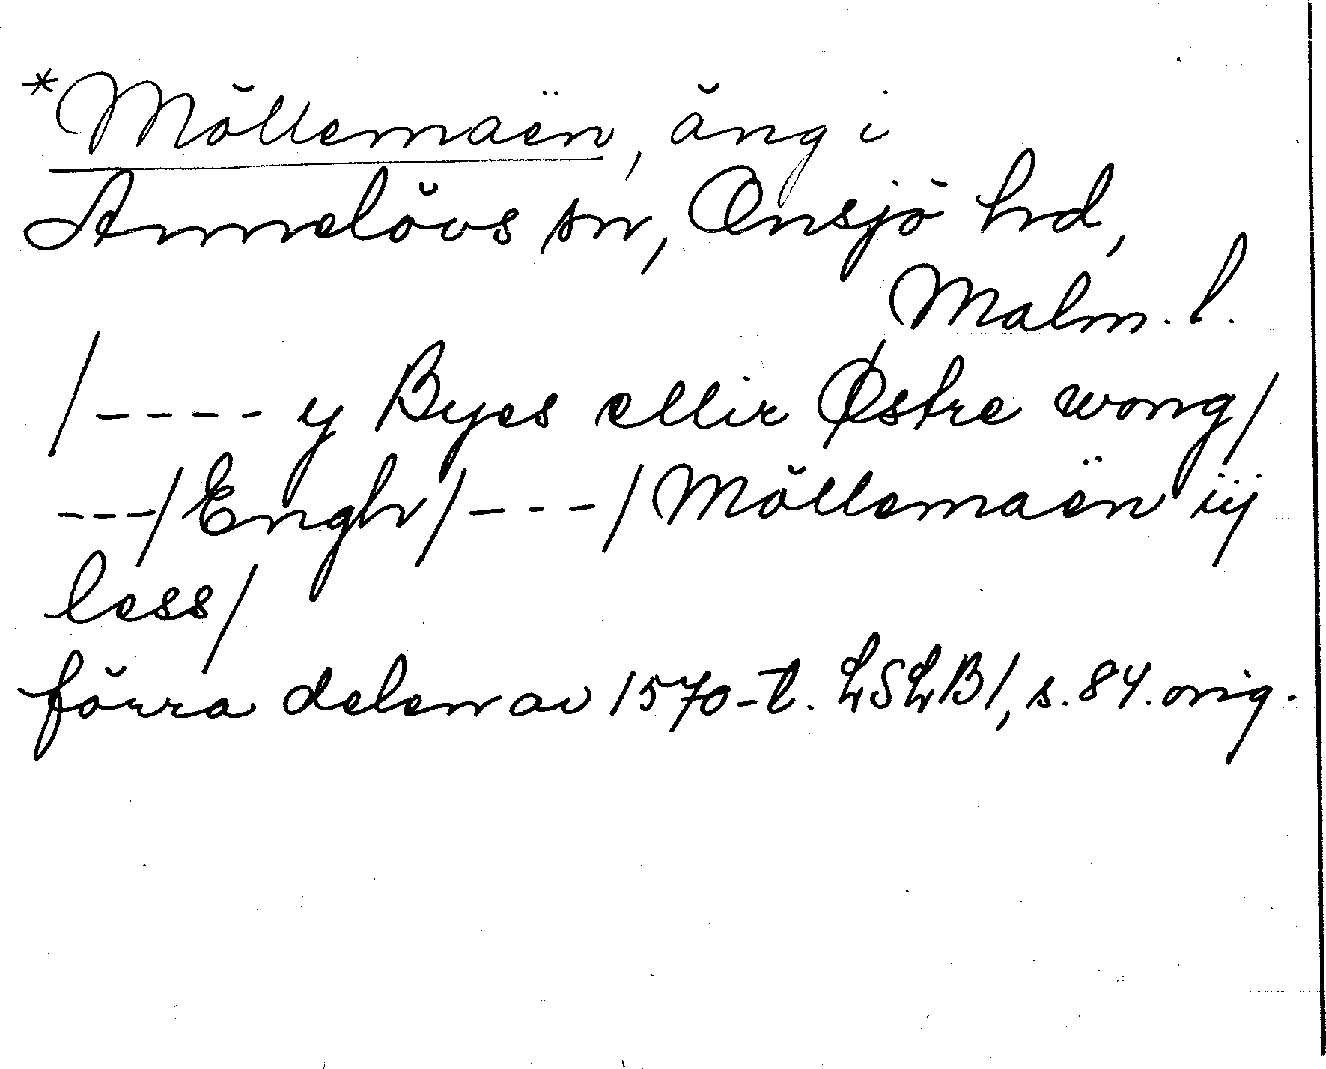 *Möllemaën, äng i
Annelövs sn, Onsjö hd,
Malm. l.
/---- y Byes ellir Østre wong/
---/Engh/---/Möllemaën iij
less/
förra delen av 1570-t. LSLB1, s. 84. orig.